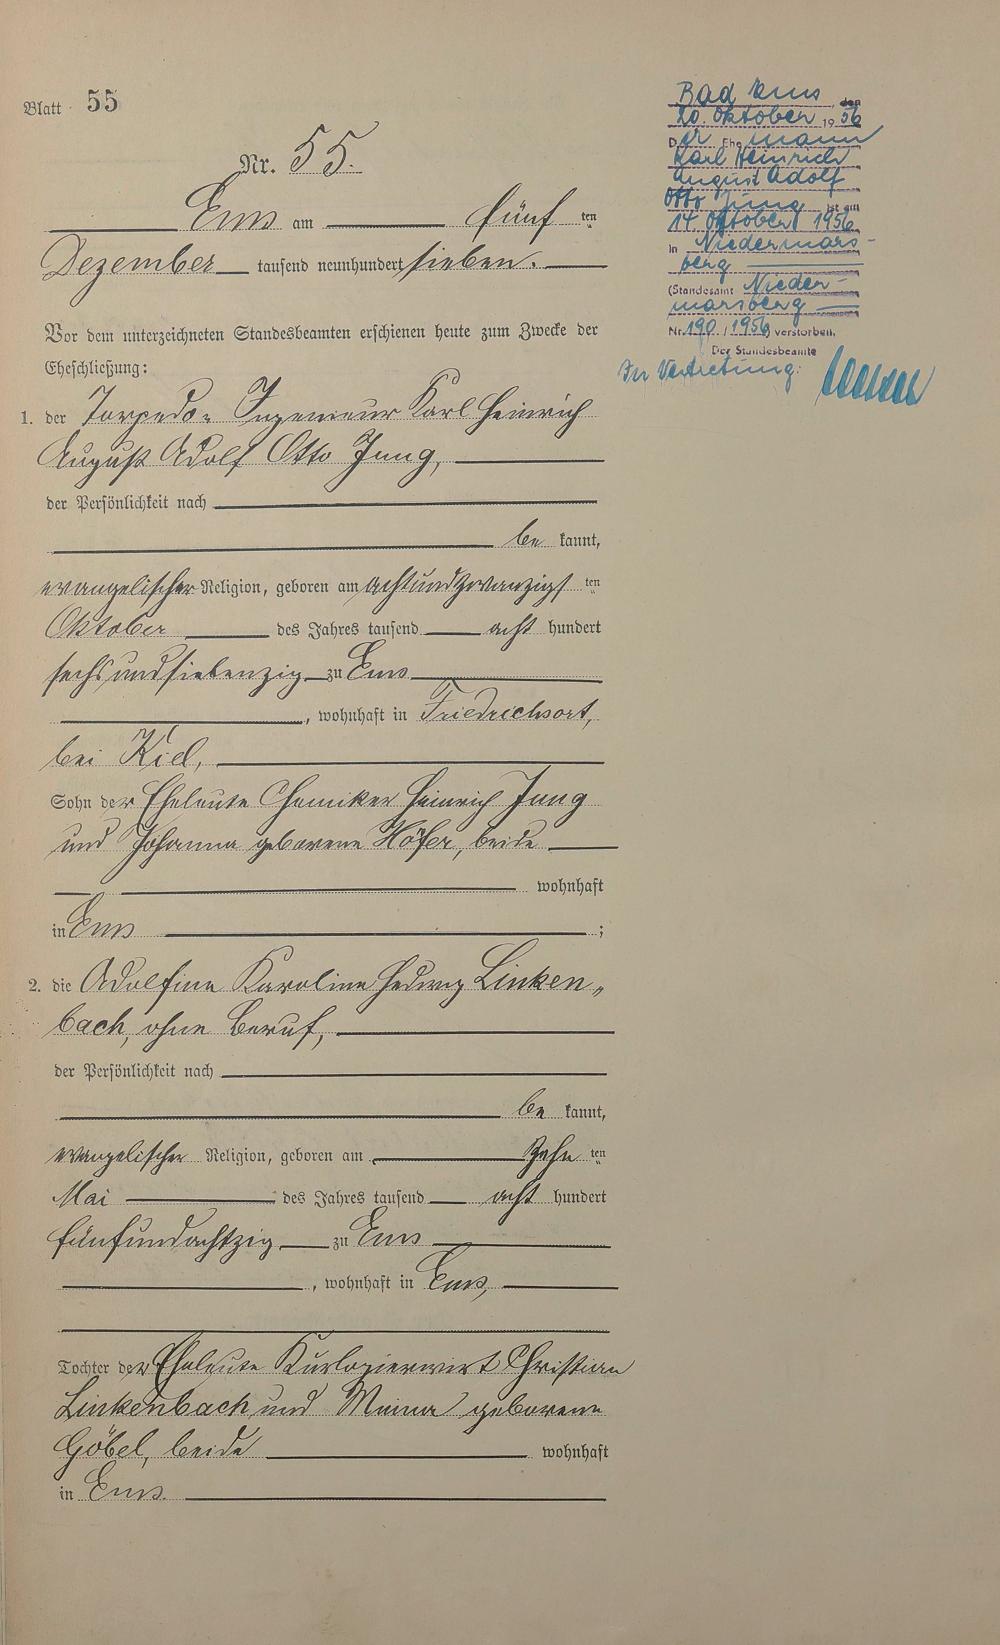 Blatt 55
Nr. 55.
Ems am fünf ten
Dezember tausend neunhundert sieben.
Vor dem unterzeichneten Standesbeamten erschienen heute zum Zwecke der
Eheschließung:
1. der Torpedo- Ingenieur Karl Heinrich
August Adolf Otto Jung,
der Persönlichkeit nach
be kannt,
evangelischer Religion, geboren am achtundzwanzigs ten
Oktober des Jahres tausend acht hundert
sechsundsiebenzig zu Ems
, wohnhaft in Friedrichsort,
bei Kiel,
Sohn der Eheleute Chemiker Heinrich Jung
und Johanna geborene Höfer, beide
wohnhaft
in Ems ;
2. die Adolfine Karoline Hedwig Linken-
bach, ohne Beruf,
der Persönlichkeit nach
be kannt,
evangelischer Religion, geboren am zehn ten
Mai des Jahres tausend acht hundert
fünfundachtzig zu Ems
, wohnhaft in Ems,
Tochter der Eheleute Kurlogierwirt Christian
Linkenbach und Minna geborene
Göbel, beide wohnhaft
in Ems.
Bad Ems, den
20. Oktober 1956
Der Ehemann
Karl Heinrich
August Adolf
Otto Jung ist am
14. Oktober 1956
in Niedermars-
berg
(Standesamt Nieder-
marsberg
Nr. 190 / 1956) verstorben.
Der Standesbeamte
In Vertretung: